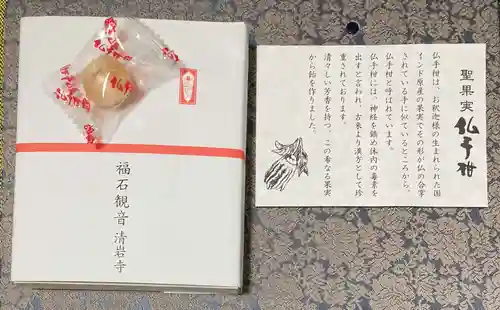 仏手柑
福石観音 清岩寺
聖果実
仏手柑
仏手柑は、お釈迦様の生まれられた国
インド原産の果実でその形が仏の合掌
されている手に似ているところから、
仏手柑と呼ばれています。
仏手柑には、神経を鎮め体内の毒素を
出すと言われ、古来より漢方として珍
重されております。
清々しい芳香を持つ、この希な果実
から飴を作りました。